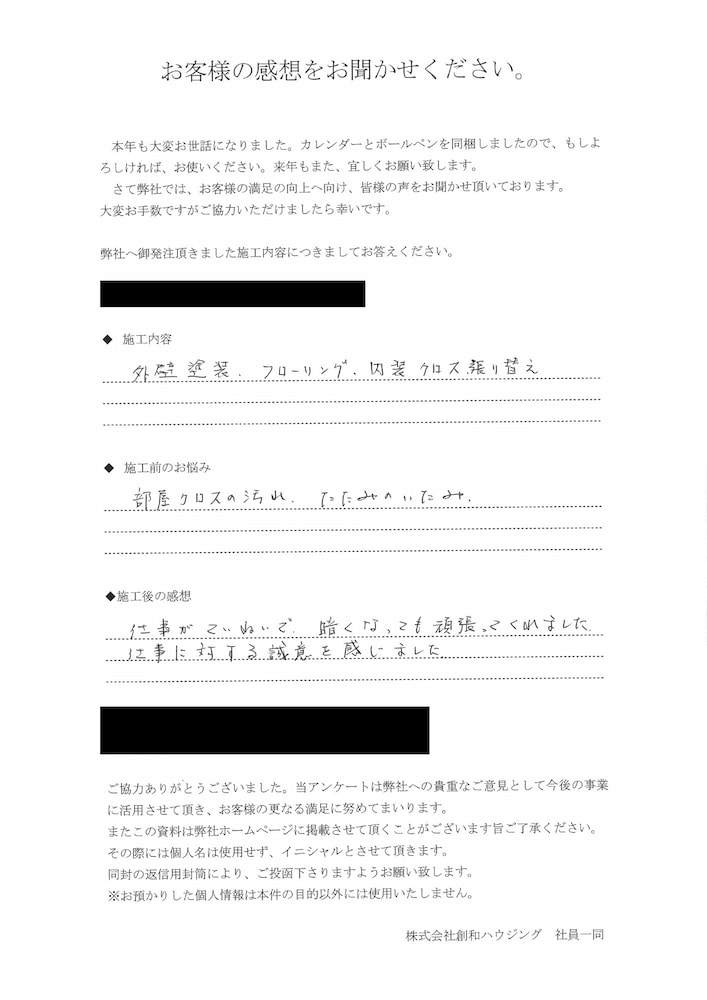 お客様の感想をお聞かせください。
本年も大変お世話になりました。カレンダーとボールペンを同梱しましたので、もしよ
ろしければ、お使いください。来年もまた、宜しくお願い致します。
さて弊社では、お客様の満足の向上へ向け、皆様の声をお聞かせ頂いております。
大変お手数ですがご協力いただけましたら幸いです。
弊社へ御発注頂きました施工内容につきましてお答えください。
◆ 施工内容
外壁塗装、フローリング、内装クロス張り替え
◆ 施工前のお悩み
部屋クロスの汚れ、たたみのいたみ、
◆施工後の感想
仕事がていねいで、暗くなっても頑張ってくれました
仕事に対する誠意を感じました
ご協力ありがとうございました。当アンケートは弊社への貴重なご意見として今後の事業
に活用させて頂き、お客様の更なる満足に努めてまいります。
またこの資料は弊社ホームページに掲載させて頂くことがございます旨ご了承ください。
その際には個人名は使用せず、イニシャルとさせて頂きます。
同封の返信用封筒により、ご投函下さりますようお願い致します。
※お預かりした個人情報は本件の目的以外には使用いたしません。
株式会社創和ハウジング 社員一同